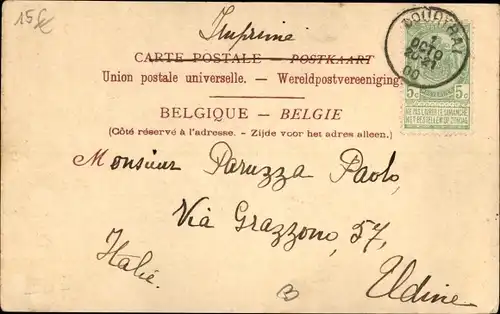 15 fc
Imprimé
CARTE POSTALE - POSTKAART
Union postale universelle. - Wereldpostvereeniging.
BELGIQUE - BELGIE
(Côté réservé à l'adresse. - Zijde voor het adres alleen.)
COURTRAI
1
OCTO
20-21
00
5c 5c
NE PAS LIVRER LE DIMANCHE
NIET BESTELLEN OP ZONDAG
Monsieur Paruzza Paolo,
Via Grazzono, 57,
Italie.
Udine
B